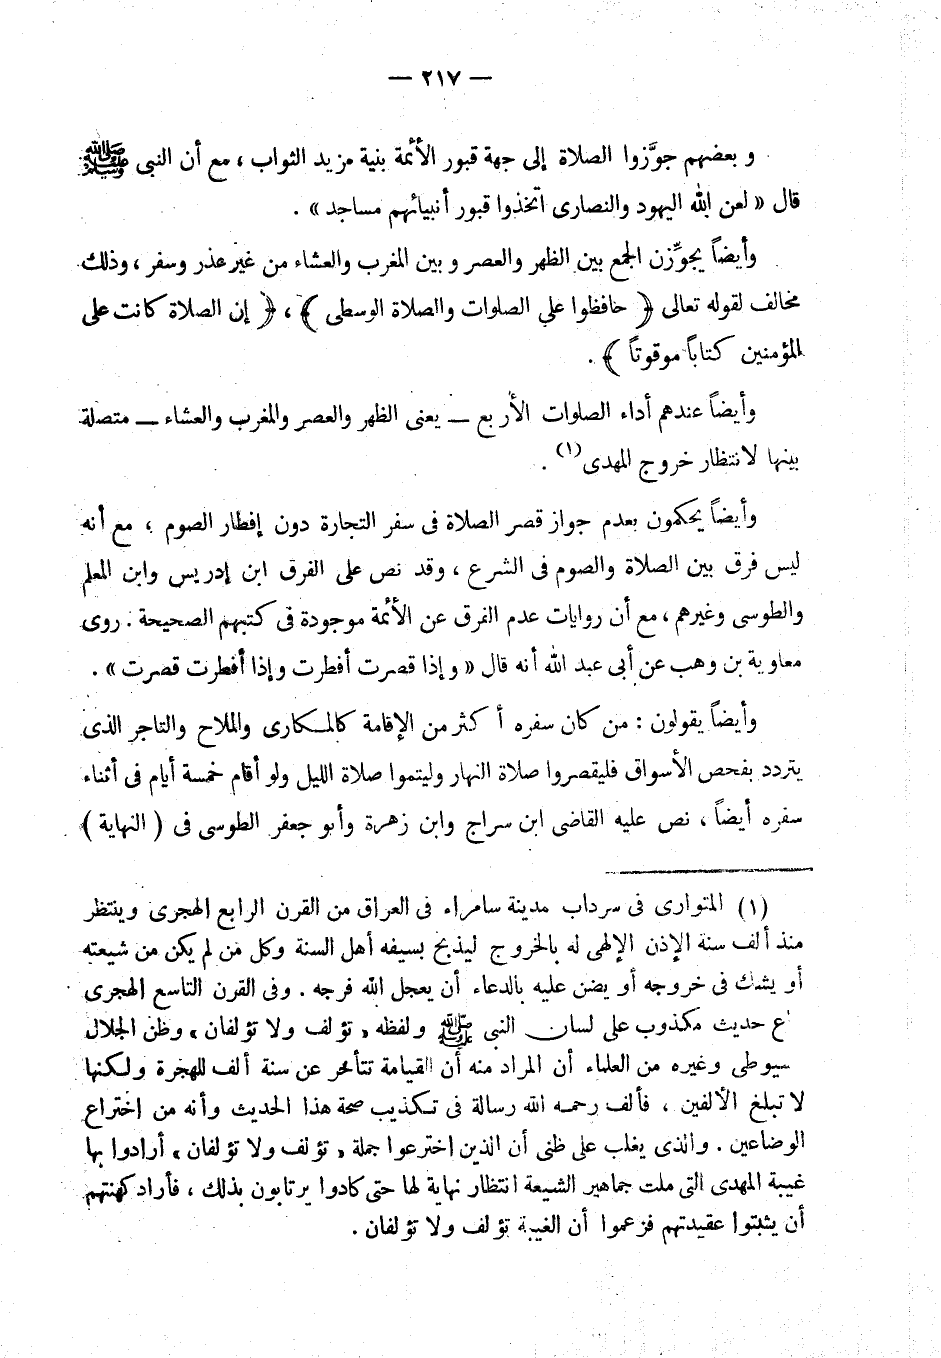 — ٢١٧ —
وبعضهم جوَّزوا الصلاة إلى جهة قبور الأئمة بنية مزيد الثواب ، مع أن النبى ﷺ
قال « لعن الله اليهود والنصارى اتخذوا قبور أنبيائهم مساجد » .
وأيضاً يجوِّزن الجمع بين الظهر والعصر وبين المغرب والعشاء من غير عذر وسفر ، وذلك
مخالف لقوله تعالى ﴿ حافظوا على الصلوات والصلاة الوسطى ﴾ ، ﴿ إن الصلاة كانت على
المؤمنين كتاباً موقوتاً ﴾ .
وأيضاً عندهم أداء الصلوات الأربع — يعنى الظهر والعصر والمغرب والعشاء — متصلة
بينها لانتظار خروج المهدى (١) .
وأيضاً يحكمون بعدم جواز قصر الصلاة فى سفر التجارة دون إفطار الصوم ، مع أنه
ليس فرق بين الصلاة والصوم فى الشرع ، وقد نص على الفرق ابن إدريس وابن المعلم
والطوسى وغيرهم ، مع أن روايات عدم الفرق عن الأئمة موجودة فى كتبهم الصحيحة . روى
معاوية بن وهب عن أبى عبد الله أنه قال « وإذا قصرت أفطرت وإذا أفطرت قصرت » .
وأيضاً يقولون : من كان سفره أكثر من الإقامة كالمكارى والملاح والتاجر الذى
يتردد بفحص الأسواق فليقصروا صلاة النهار وليتموا صلاة الليل ولو أقام خمسة أيام فى أثناء
سفره أيضاً ، نص عليه القاضى ابن سراج وابن زهرة وأبو جعفر الطوسى فى ( النهاية )
(١) المتوارى فى سرداب مدينة سامراء فى العراق من القرن الرابع الهجرى وينتظر
منذ ألف سنة الإذن الإلهى له بالخروج ليذبح بسيفه أهل السنة وكل من لم يكن من شيعته
أو يشك فى خروجه أو يضن عليه بالدعاء أن يعجل الله فرجه . وفى القرن التاسع الهجرى
ع حديث مكذوب على لسان النبى ﷺ ولفظه « تؤلف ولا تؤلفان » وظن الجلال
سيوطى وغيره من العلماء أن المراد منه أن القيامة تتأخر عن سنة ألف للهجرة ولكنها
لا تبلغ الألفين ، فألف رحمه الله رسالة فى تكذيب صحة هذا الحديث وأنه من اختراع
الوضاعين . والذى يغلب على ظنى أن الذين اخترعوا جملة « تؤلف ولا تؤلفان » أرادوا بها
غيبة المهدى التى ملت جماهير الشيعة انتظار نهاية لها حتى كادوا يرتابون بذلك ، فأراد كهنتهم
أن يثبتوا عقيدتهم فزعموا أن الغيبة تؤلف ولا تؤلفان .